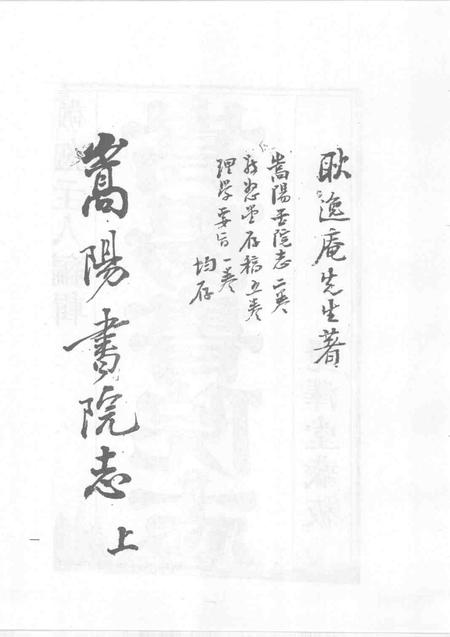 耿逸庵先生著
嵩陽书院志二卷
敬恕堂存稿五卷
理学要旨一卷
均存
嵩陽書院志 上